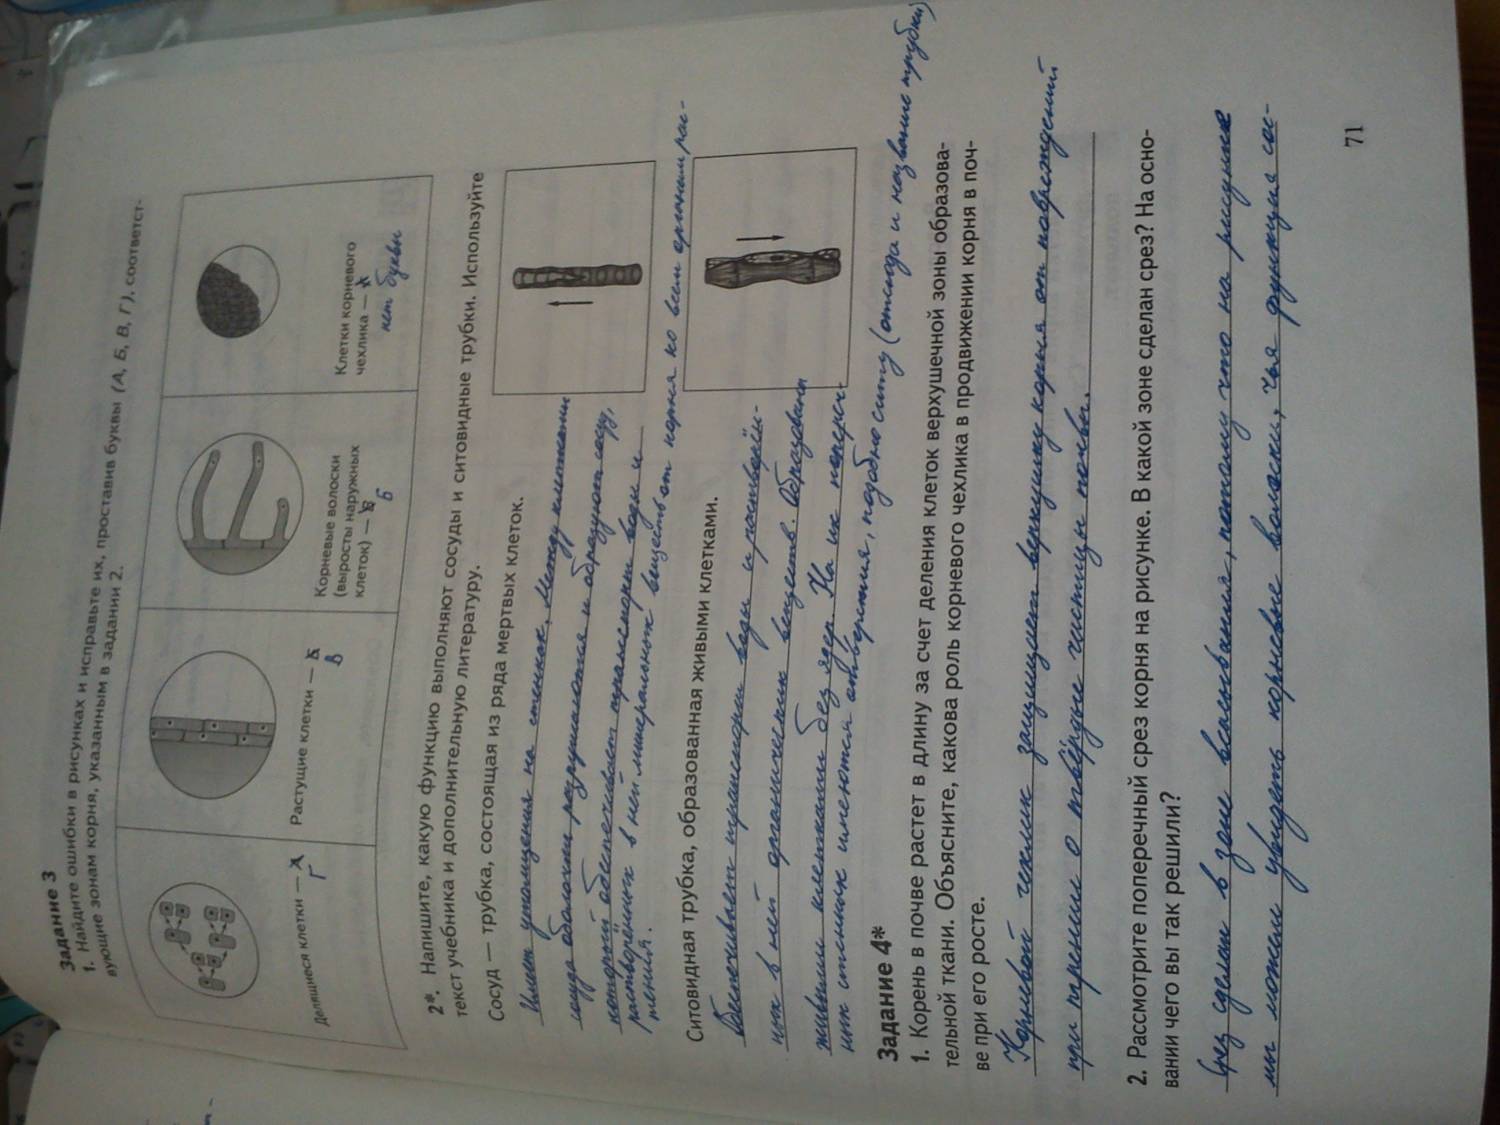 Задание 3
1. Найдите ошибки в рисунках и исправьте их, проставив буквы (А, Б, В, Г), соответст-
вующие зонам корня, указанным в задании 2.
Делящиеся клетки — А
Г
Растущие клетки — Б
В
Корневые волоски
(выросты наружных
клеток) — В
Б
Клетки корневого
чехлика —
нет буквы
2*. Напишите, какую функцию выполняют сосуды и ситовидные трубки. Используйте
текст учебника и дополнительную литературу.
Сосуд — трубка, состоящая из ряда мертвых клеток.
Имеет утолщения на стенках. Между клетками
оболочки разрушаются и образуют сосуд,
который обеспечивает транспорт воды и
растворённых в ней минеральных веществ от корня ко всем органам рас-
тения.
Ситовидная трубка, образованная живыми клетками.
Обеспечивает транспорт воды и растворён-
ных в ней органических веществ. Образована
живыми клетками без ядер. На их попереч-
ных стенках имеются отверстия, подобно ситу (отсюда и название трубки)
Задание 4*
1. Корень в почве растет в длину за счет деления клеток верхушечной зоны образова-
тельной ткани. Объясните, какова роль корневого чехлика в продвижении корня в поч-
ве при его росте.
Корневой чехлик защищает верхушку корня от повреждений
при трении о твёрдые частицы почвы.
2. Рассмотрите поперечный срез корня на рисунке. В какой зоне сделан срез? На осно-
вании чего вы так решили?
Срез сделан в зоне всасывания, потому что на рисунке
мы можем увидеть корневые волоски, чья функция со-
71